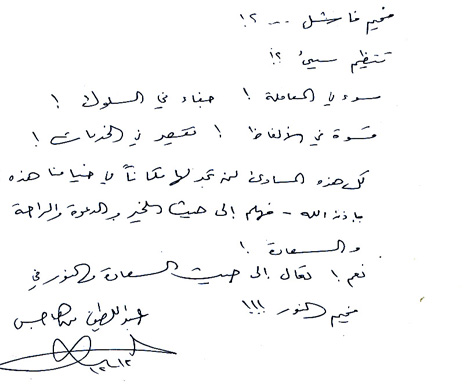 مخيم فاشل ... ؟!
تنظيم سيئ ؟!
سوء في المعاملة ! جفاء في السلوك !
قسوة في الألفاظ ! تقصير في الخدمات !
كل هذه المساوئ لن تجد لها مكاناً في خيامنا هذه
بإذن الله - فهلم إلى حيث الخير والدعوة والراحة
والسعادة !
نعم ! تعال إلى حيث السعادة والنور في
مخيم النور !!!
عبد اللطيف